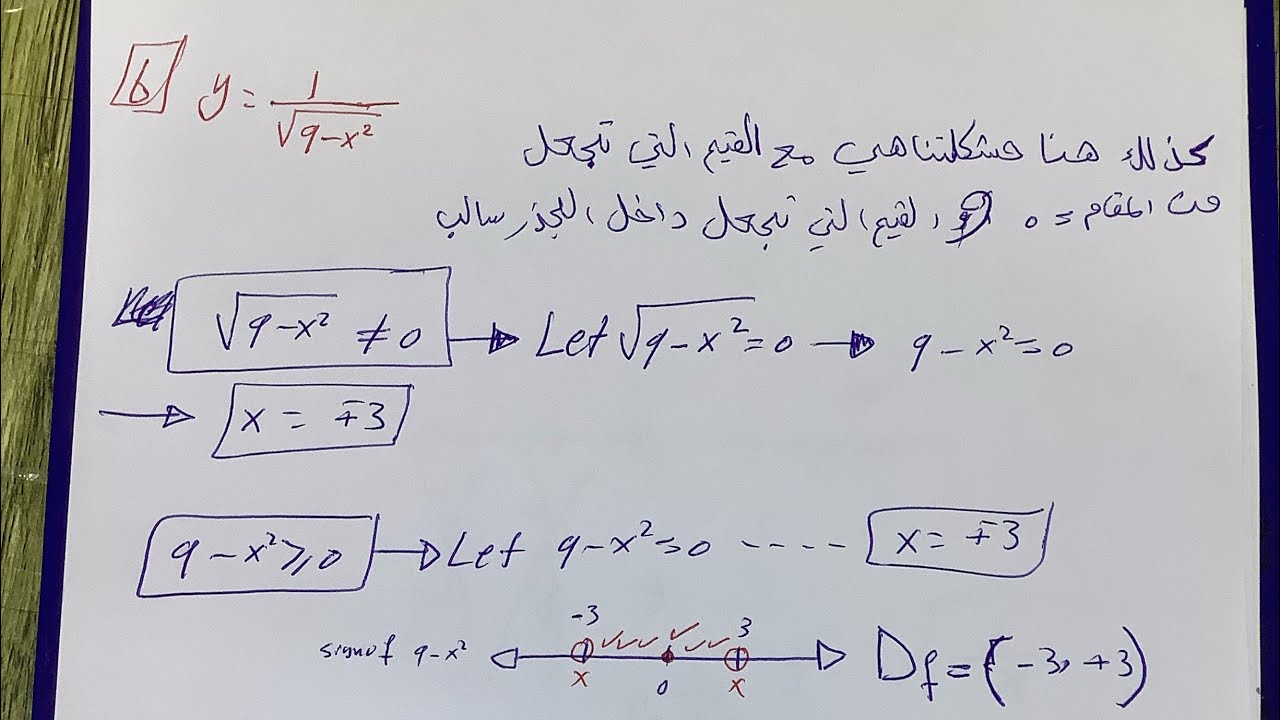 6 y = 1/√(9-x²)
كذلك هنا مشكلتنا هي مع القيم التي تجعل
من المقام = 0 و القيم التي تجعل داخل الجذر سالب
√(9-x²) ≠ 0 → Let √(9-x²) = 0 → 9-x² = 0
→ x = ∓3
9-x² ≥ 0 → Let 9-x² = 0 ---- x = ∓3
-3 3
sign of 9-x² 0 Df = (-3, +3)
x x